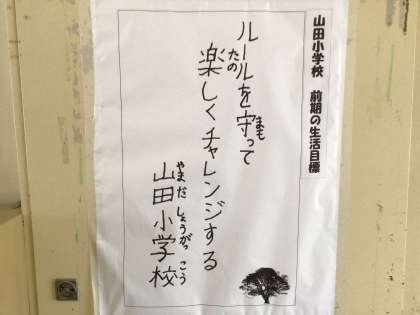 山田小学校 前期の生活目標
ルールを守って
まも
楽しくチャレンジする
たの
山田小学校
やまだ しょうがっこう